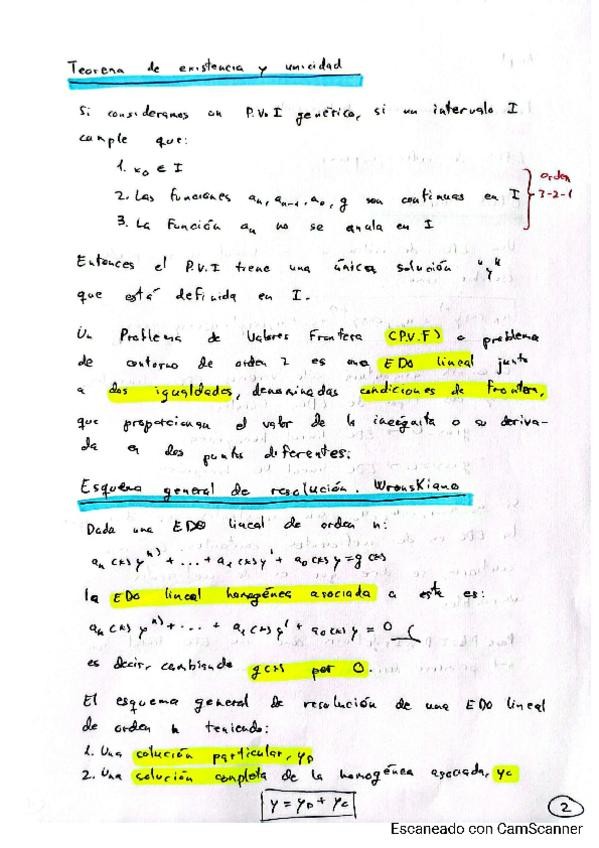 Teorema de existencia y unicidad
Si consideramos un P.V.I genérico, si un intervalo I
cumple que:
1. x₀ ∈ I
2. Las funciones aₙ, aₙ₋₁, a₀, g son continuas en I
3. La función aₙ no se anula en I
orden
3-2-1
Entonces el P.V.I tiene una única solución "y"
que está definida en I.
Un Problema de Valores Frontera (P.V.F) o problema
de contorno de orden 2 es una EDO lineal junto
a dos igualdades, denominadas condiciones de frontera,
que proporcionan el valor de la incógnita o su deriva-
da en dos puntos diferentes:
Esquema general de resolución. Wronskiano
Dada una EDO lineal de orden n:
aₙ(x) yⁿ⁾ + ... + a₁(x) y' + a₀(x) y = g(x)
la EDO lineal homogénea asociada a esta es:
aₙ(x) yⁿ⁾ + ... + a₁(x) y' + a₀(x) y = 0
es decir, cambiando g(x) por 0.
El esquema general de resolución de una EDO lineal
de orden n teniendo:
1. Una solución particular, yp
2. Una solución completa de la homogénea asociada, yc
y = yp + yc
2
Escaneado con CamScanner